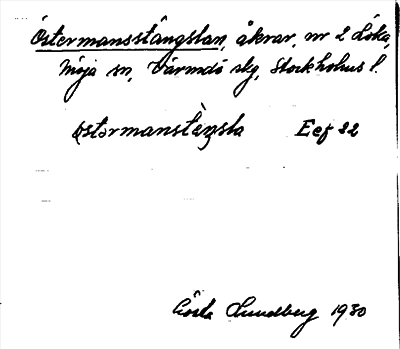 Östermansstängslan, åkrar, nr 2 Löka,
Möja sn, Värmdö skg, Stockholms l.
östərmanstèŋsla Eef 22
Gösta Lundberg 1930